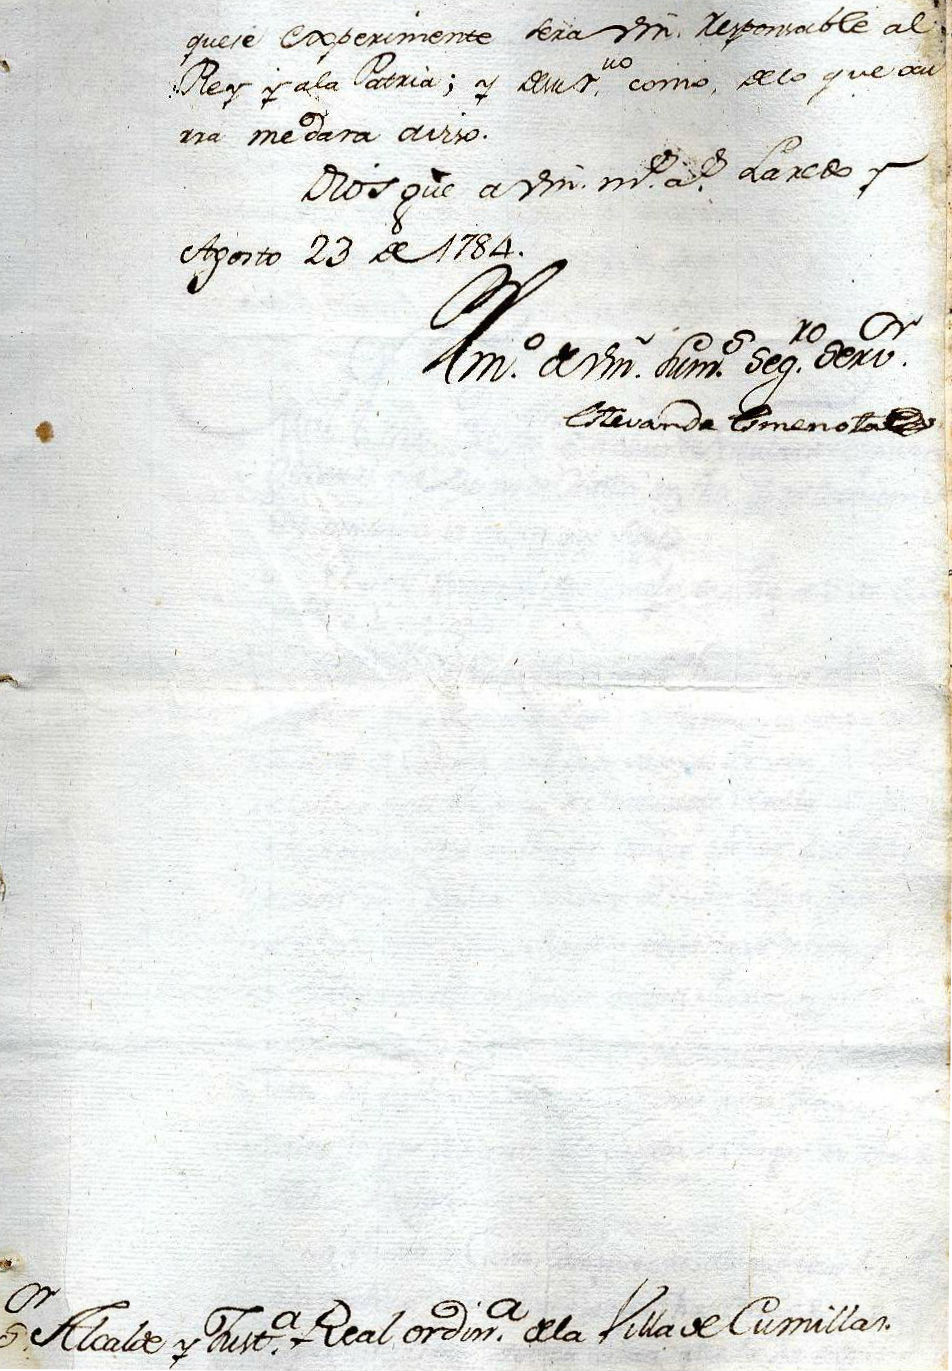 quese experimente sera Vm. responsable al
Rey y ala Patria; y de su r.vo como, de lo que ocu
rra me dara aviso.
Dios gue a Vm. m.s a.s Laredo y
Agosto 23 de 1784.
de Vm. su m.s seg.ro serv.or
Estevan de
S.or Alcalde y Just.a Real ordin.a dela Villa de Cumillas.